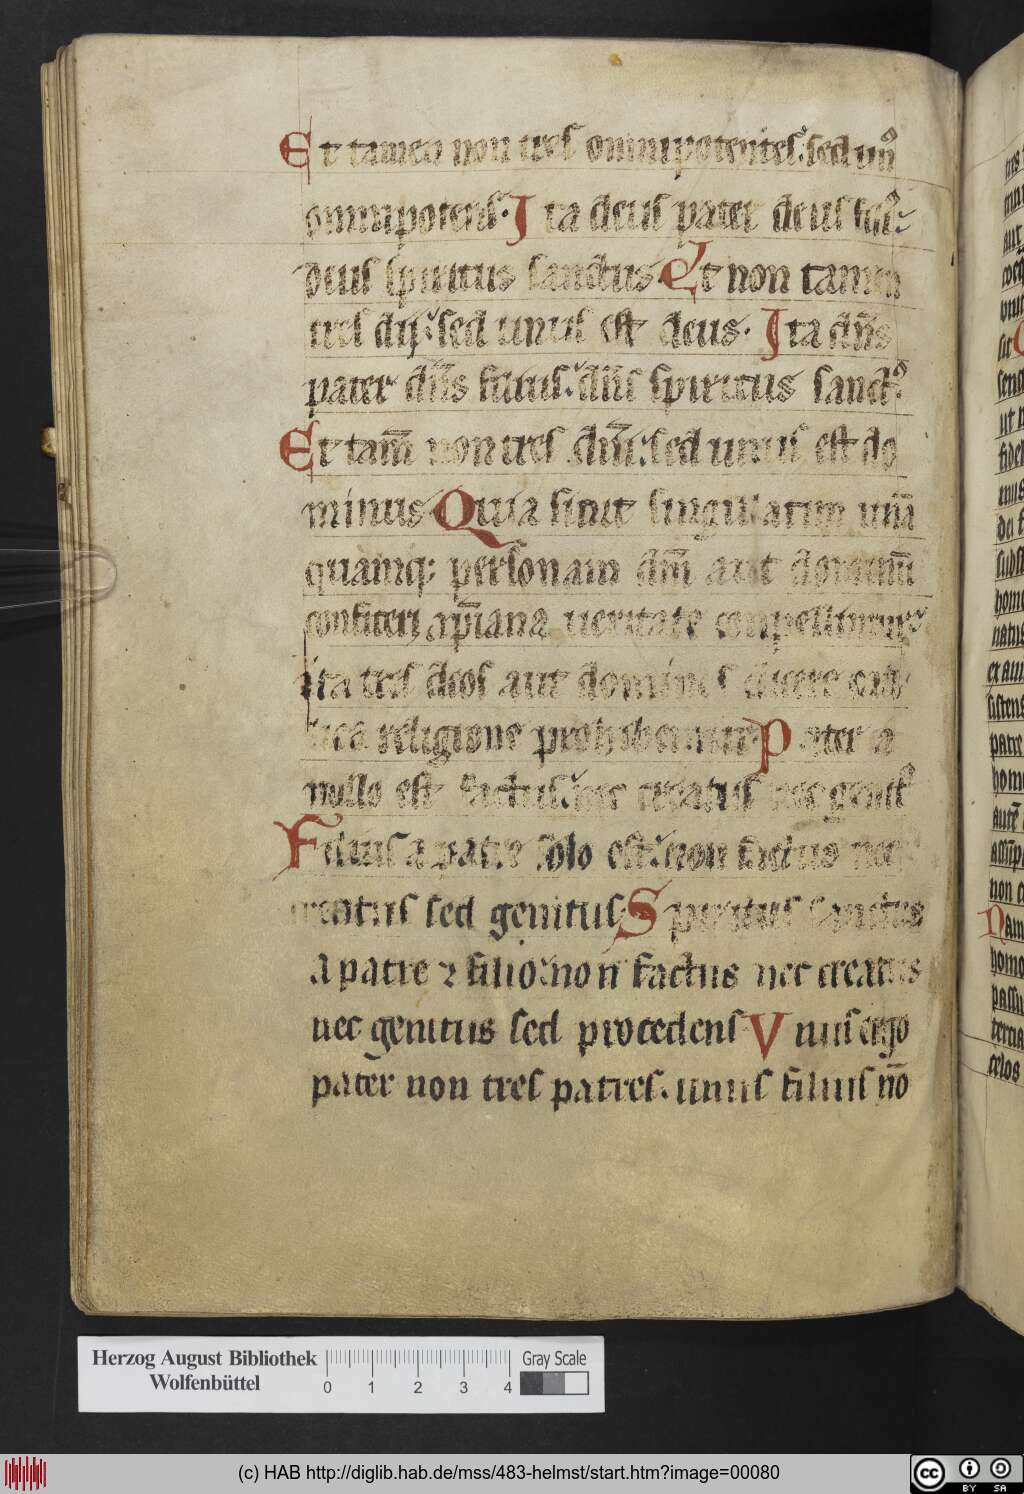 Et tamen non tres omnipotentes. sed un⁹
omnipotens. Ita deus pater deus fili⁹
deus spiritus sanctus. Et non tamen
tres dij. sed unus est deus. Ita dn̄s
pater dn̄s filius. dn̄s spiritus sanct⁹.
Et tam̄ non tres dn̄i. sed unus est do
minus Quia sicut singillatim unā
quamq; personam dm̄ aut dominū
confiteri xp̄iana ueritate conpellimur
ita tres deos aut dominos dicere cath
lica religione prohibemur. Pater a
nullo est factus. nec creatus nec genit⁹
Filius a patre solo est. non factus nec
creatus sed genitus. Spiritus sanctus
a patre ⁊ filio. non factus nec creatus
nec genitus sed procedens. Vnus ergo
pater non tres patres. unus filius nō
Herzog August Bibliothek
Wolfenbüttel
0 1 2 3 4
Gray Scale
(c) HAB http://diglib.hab.de/mss/483-helmst/start.htm?image=00080
cc BY SA